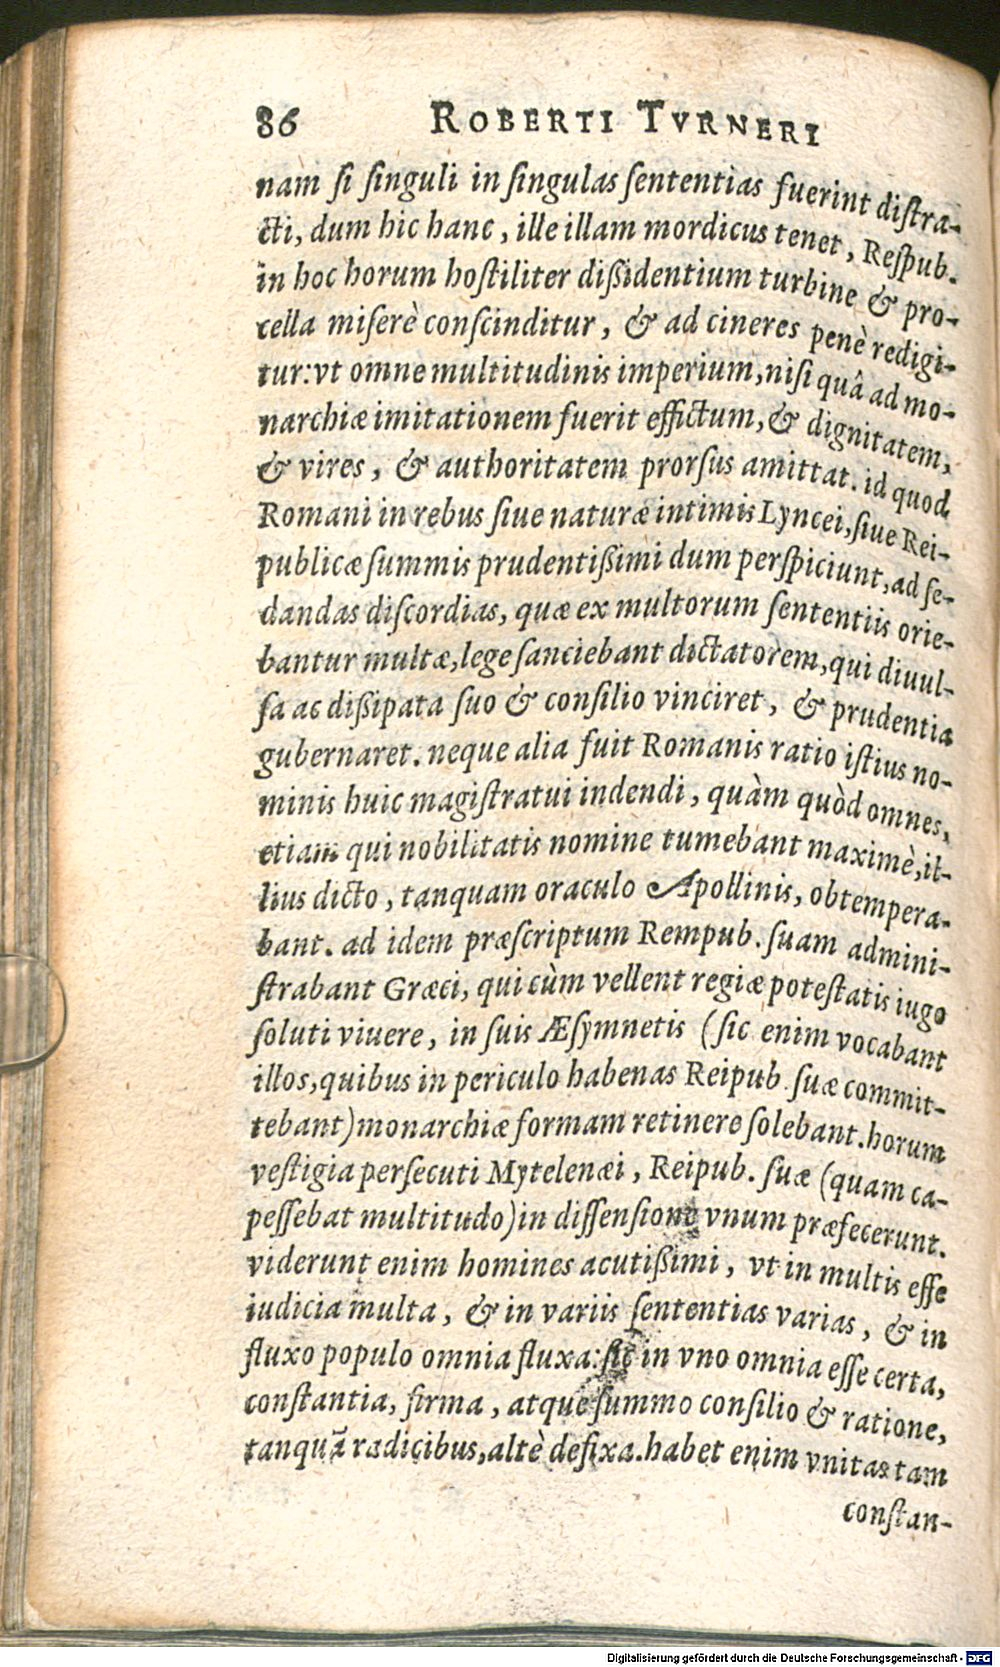 86 ROBERTI TVRNERI
nam ſi ſinguli in ſingulas ſententias fuerint diſtra-
cti, dum hic hanc, ille illam mordicus tenet, Reſpub.
in hoc horum hoſtiliter dißidentium turbine & pro-
cella miſerè conſcinditur, & ad cineres penè redigi-
tur: vt omne multitudinis imperium, niſi quâ ad mo-
narchiæ imitationem fuerit effictum, & dignitatem,
& vires, & authoritatem prorſus amittat. id quod
Romani in rebus ſiue naturæ intimis Lyncei, ſiue Rei-
publicæ ſummis prudentißimi dum perſpiciunt, ad ſe-
dandas diſcordias, quæ ex multorum ſententiis orie-
bantur multæ, lege ſanciebant dictatorem, qui diuul-
ſa ac dißipata ſuo & conſilio vinciret, & prudentia
gubernaret. neque alia fuit Romanis ratio iſtius no-
minis huic magiſtratui indendi, quàm quòd omnes,
etiam qui nobilitatis nomine tumebant maximè, il-
lius dicto, tanquam oraculo Apollinis, obtempera-
bant. ad idem præſcriptum Rempub. ſuam admini-
ſtrabant Græci, qui cùm vellent regiæ poteſtatis iugo
ſoluti viuere, in ſuis Æſymnetis (ſic enim vocabant
illos, quibus in periculo habenas Reipub. ſuæ commit-
tebant) monarchiæ formam retinere ſolebant. horum
veſtigia perſecuti Mytelenæi, Reipub. ſuæ (quam ca-
peſſebat multitudo) in diſſenſione vnum præfecerunt.
viderunt enim homines acutißimi, vt in multis eſſe
iudicia multa, & in variis ſententias varias, & in
fluxo populo omnia fluxa: ſic in vno omnia eſſe certa,
conſtantia, firma, atque ſummo conſilio & ratione,
tanquã radicibus, altè defixa. habet enim vnitas tam
conſtan-
Digitalisierung gefördert durch die Deutsche Forschungsgemeinschaft - DFG